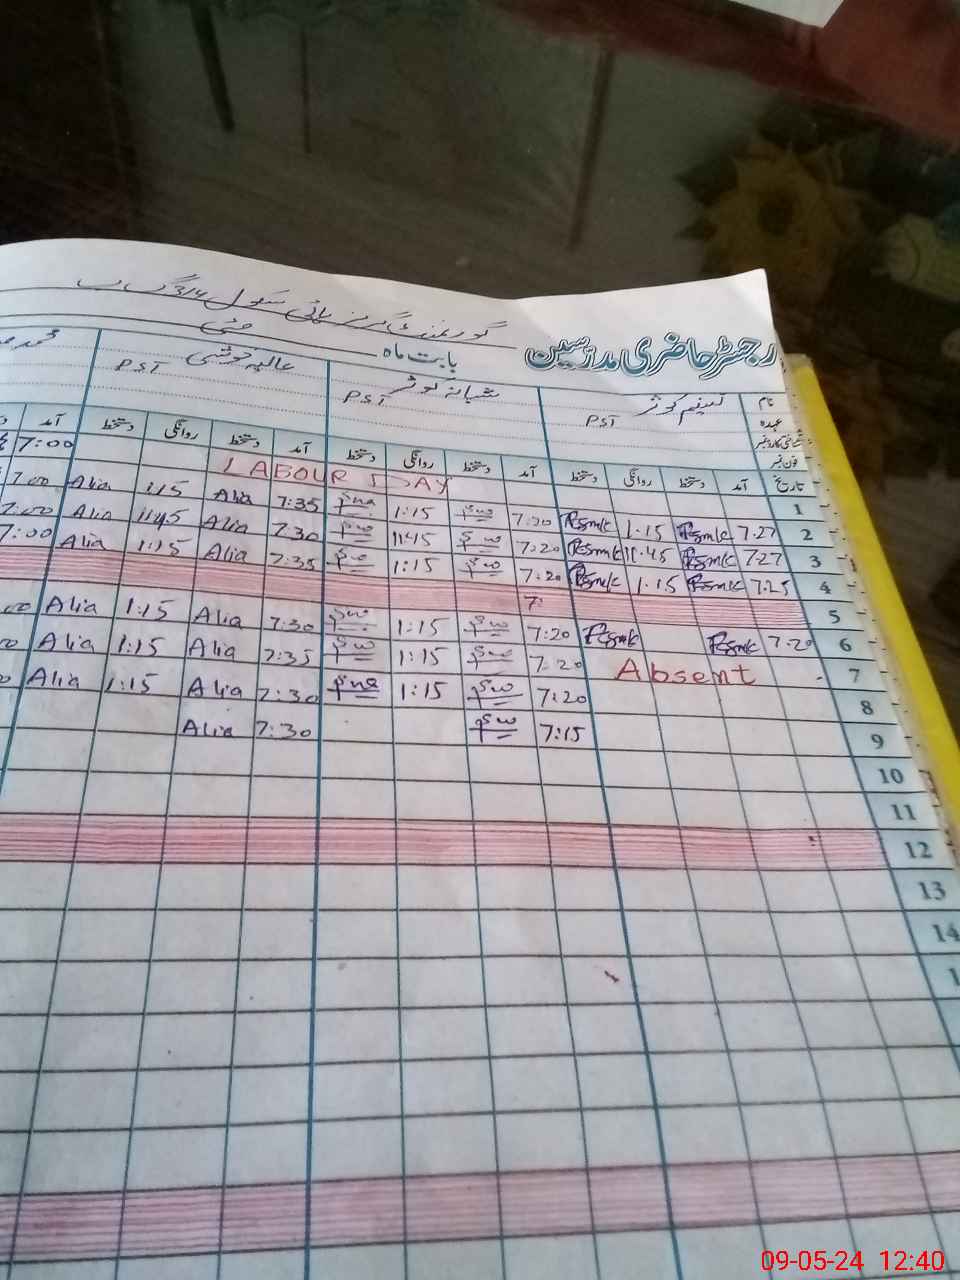 گورنمنٹ گرلز ہائی سکول 316 گ ب
رجسٹر حاضری مدرسین بابت ماہ مئی
نام تسنیم کوثر شبانہ کوثر عالیہ
عہدہ PST PST PST
شناختی کارڈ نمبر
فون نمبر
تاریخ آمد دستخط روانگی دستخط آمد دستخط روانگی دستخط آمد دستخط روانگی دستخط آمد
1 LABOUR DAY 7:00
2 7.27 1.15 7:20 1:15 7:35 Alia 1:15 Alia 7:00
3 7.27 11.45 7:20 11:45 7:30 Alia 11:45 Alia 7:00
4 7.25 1.15 7:20 1:15 7:35 Alia 1:15 Alia 7:00
5 7:
6 7.20 7:20 1:15 7:30 Alia 1:15 Alia
7 Absent 7:20 1:15 7:35 Alia 1:15 Alia
8 7:20 1:15 7:30 Alia 1:15 Alia
9 7:15 7:30 Alia
10
11
12
13
14
09-05-24 12:40